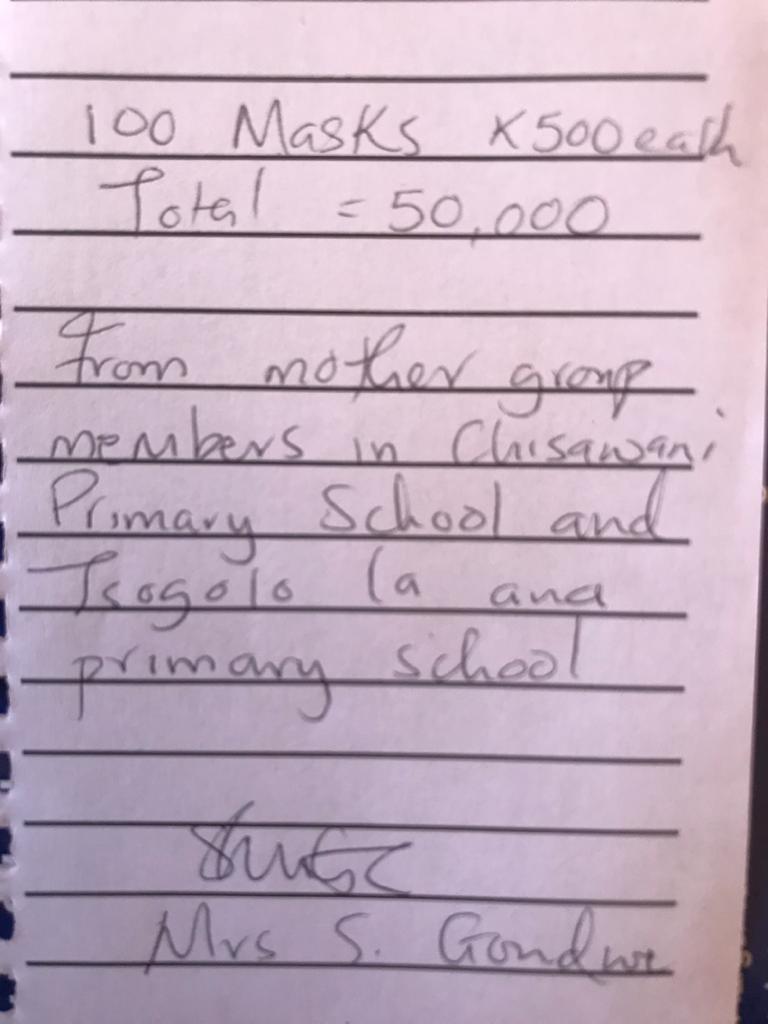 100 Masks K500 each
Total = 50,000
from mother group
members in Chisawani
Primary School and
Tsogolo la ana
primary school
Mrs S. Gondwe